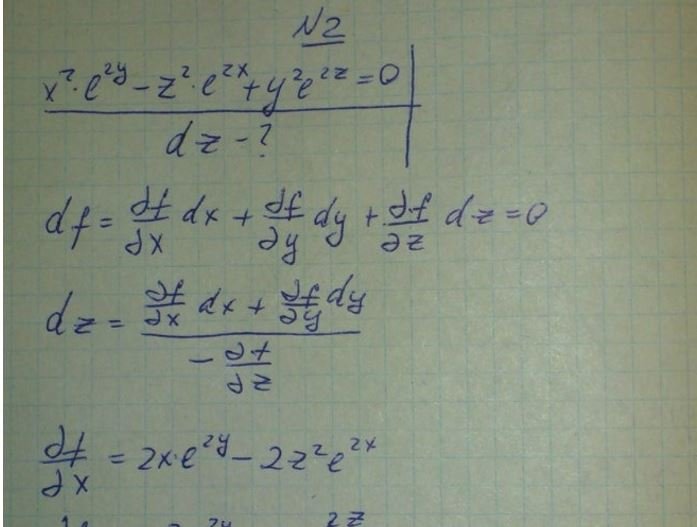 N2
x²·e^2y − z²·e^2x + y²e^2z = 0
dz − ?
df = ∂f/∂x dx + ∂f/∂y dy + ∂f/∂z dz = 0
dz = (∂f/∂x dx + ∂f/∂y dy) / (− ∂f/∂z)
∂f/∂x = 2x·e^2y − 2z²e^2x